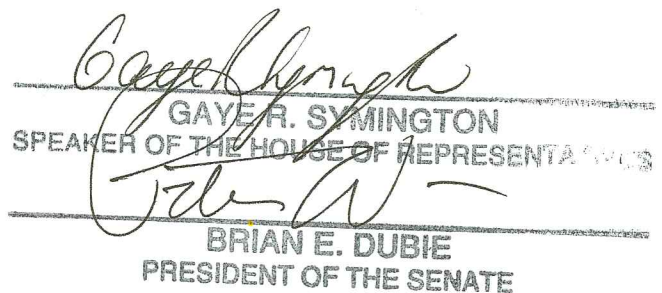 Gaye R Symington
GAYE R. SYMINGTON
SPEAKER OF THE HOUSE OF REPRESENTATIVES
BRIAN E. DUBIE
PRESIDENT OF THE SENATE